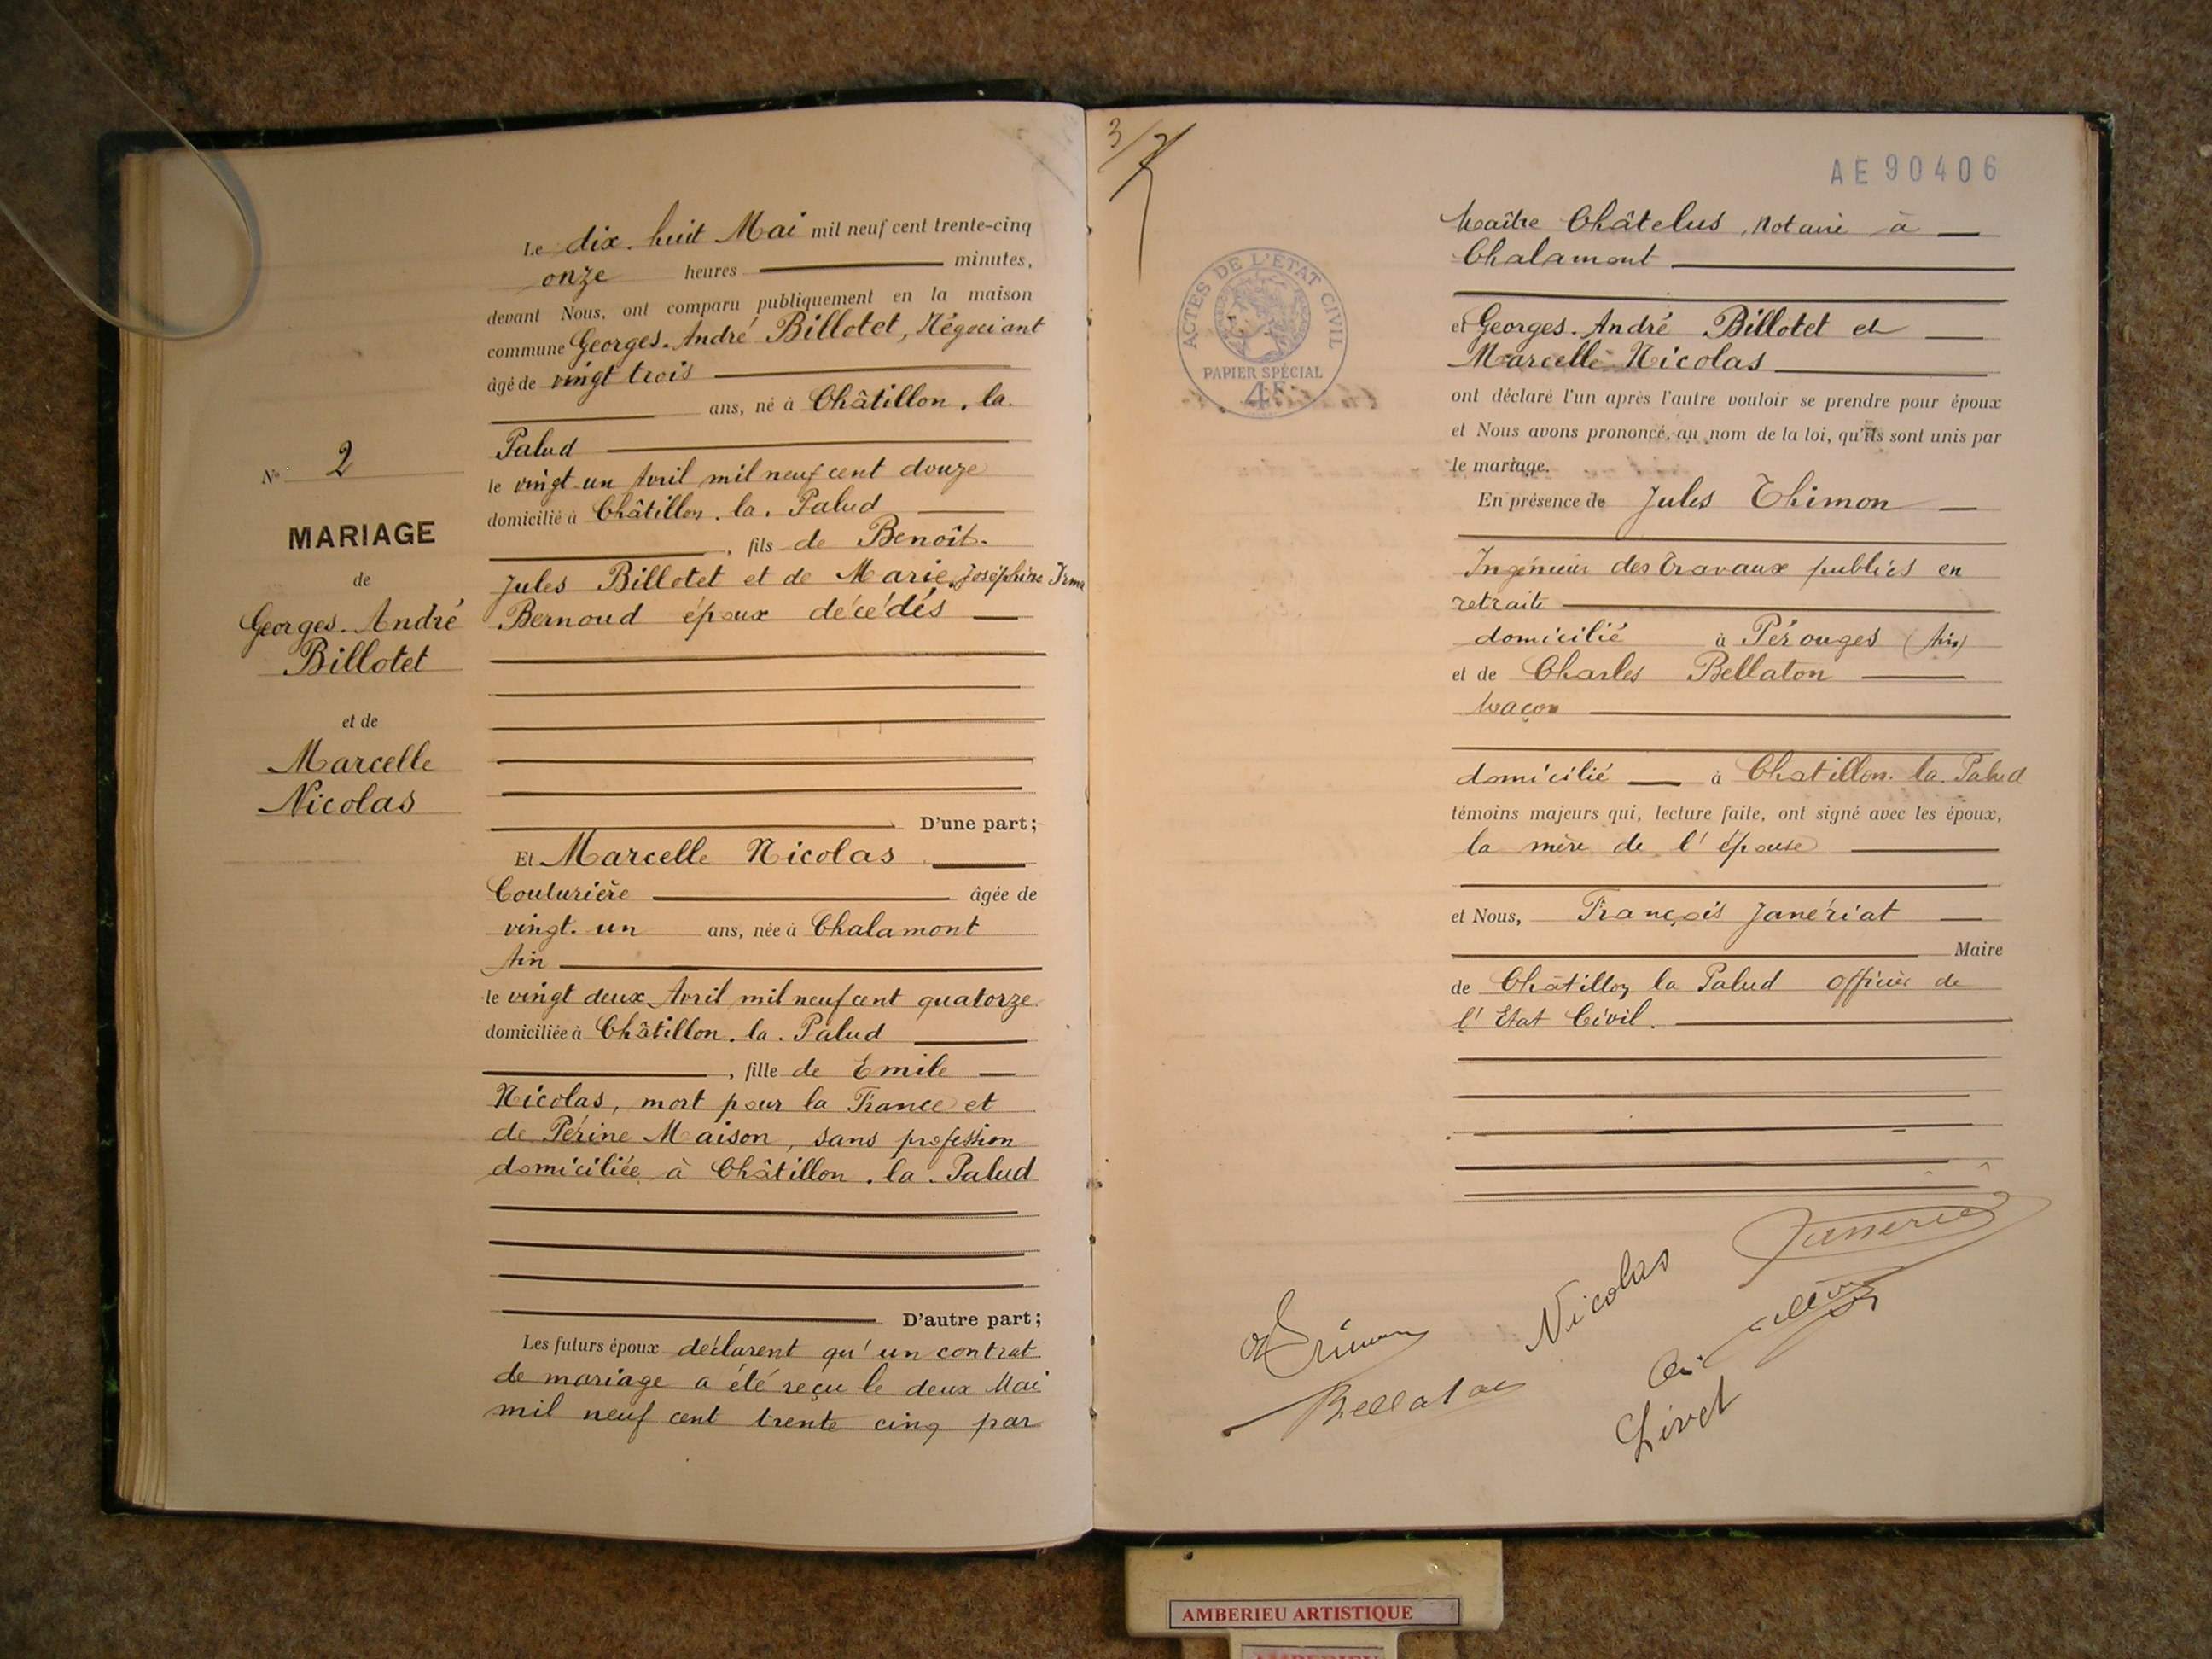 N° 2
MARIAGE
de
Georges-André
Billotet
et de
Marcelle
Nicolas
Le dix-huit Mai mil neuf cent trente-cinq
onze heures minutes,
devant Nous, ont comparu publiquement en la maison
commune Georges-André Billotet, Négociant
âgé de vingt trois
ans, né à Châtillon-la-
Palud
le vingt-un Avril mil neuf cent douze
domicilié à Châtillon-la-Palud
, fils de Benoît-
Jules Billotet et de Marie-Joséphine Irma
Bernoud époux décédés
D'une part;
Et Marcelle Nicolas
Couturière âgée de
vingt-un ans, née à Chalamont
Ain
le vingt deux Avril mil neuf cent quatorze
domiciliée à Châtillon-la-Palud
, fille de Emile
Nicolas, mort pour la France et
de Périne Maison, sans profession
domiciliée à Châtillon-la-Palud
D'autre part;
Les futurs époux déclarent qu'un contrat
de mariage a été reçu le deux Mai
mil neuf cent trente cinq par
3/
AE90406
ACTES DE L'ÉTAT CIVIL
PAPIER SPÉCIAL
4F
Maître Châtelus, Notaire à
Chalamont
et Georges-André Billotet et
Marcelle Nicolas
ont déclaré l'un après l'autre vouloir se prendre pour époux
et Nous avons prononcé, au nom de la loi, qu'ils sont unis par
le mariage.
En présence de Jules Thimon
Ingénieur des travaux publics en
retraite
domicilié à Pérouges (Ain)
et de Charles Bellaton
Maçon
domicilié à Chatillon-la-Palud
témoins majeurs qui, lecture faite, ont signé avec les époux,
la mère de l'épouse
et Nous, François Janériat
Maire
de Châtillon la Palud officier de
l'Etat Civil.
Nicolas
Bellaton
AMBERIEU ARTISTIQUE
AMBERIEU